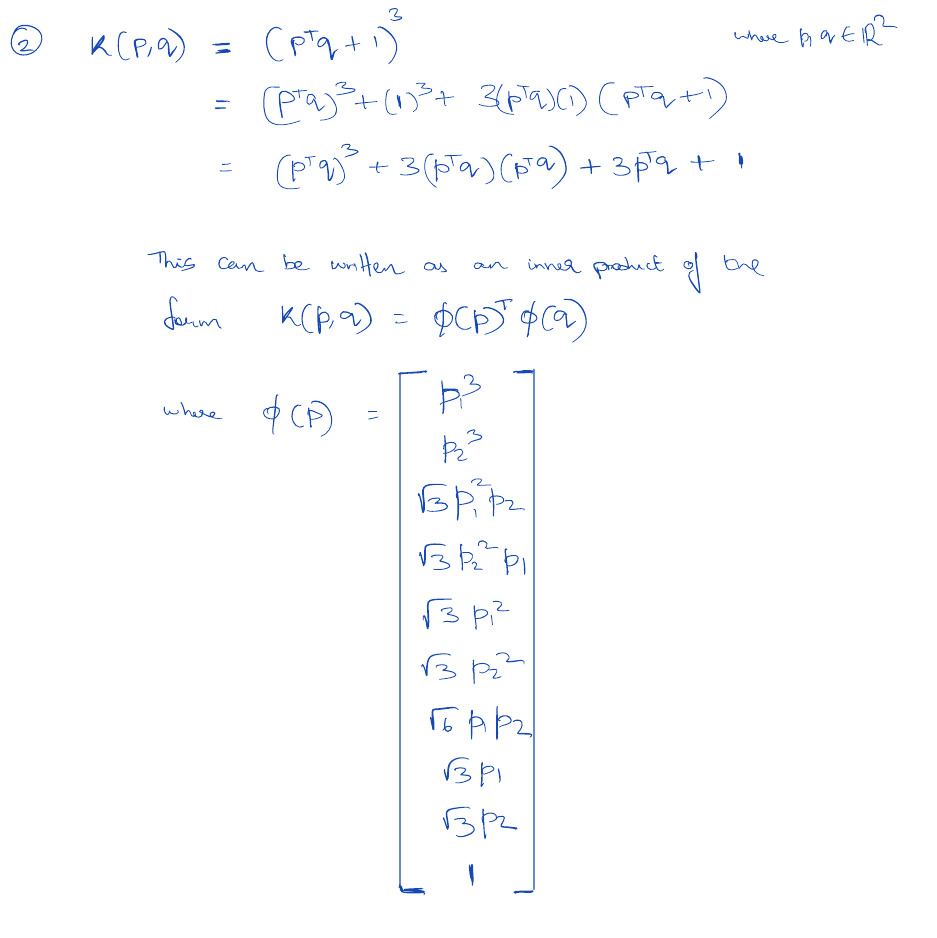 ② K(p,q) = (pᵀq + 1)³ where p, q ∈ ℝ²
= (pᵀq)³ + (1)³ + 3(pᵀq)(1) (pᵀq + 1)
= (pᵀq)³ + 3(pᵀq)(pᵀq) + 3pᵀq + 1
This can be written as an inner product of the
form K(p,q) = φ(p)ᵀ φ(q)
where φ(p) = [
p₁³
p₂³
√3 p₁² p₂
√3 p₂² p₁
√3 p₁²
√3 p₂²
√6 p₁ p₂
√3 p₁
√3 p₂
1 ]